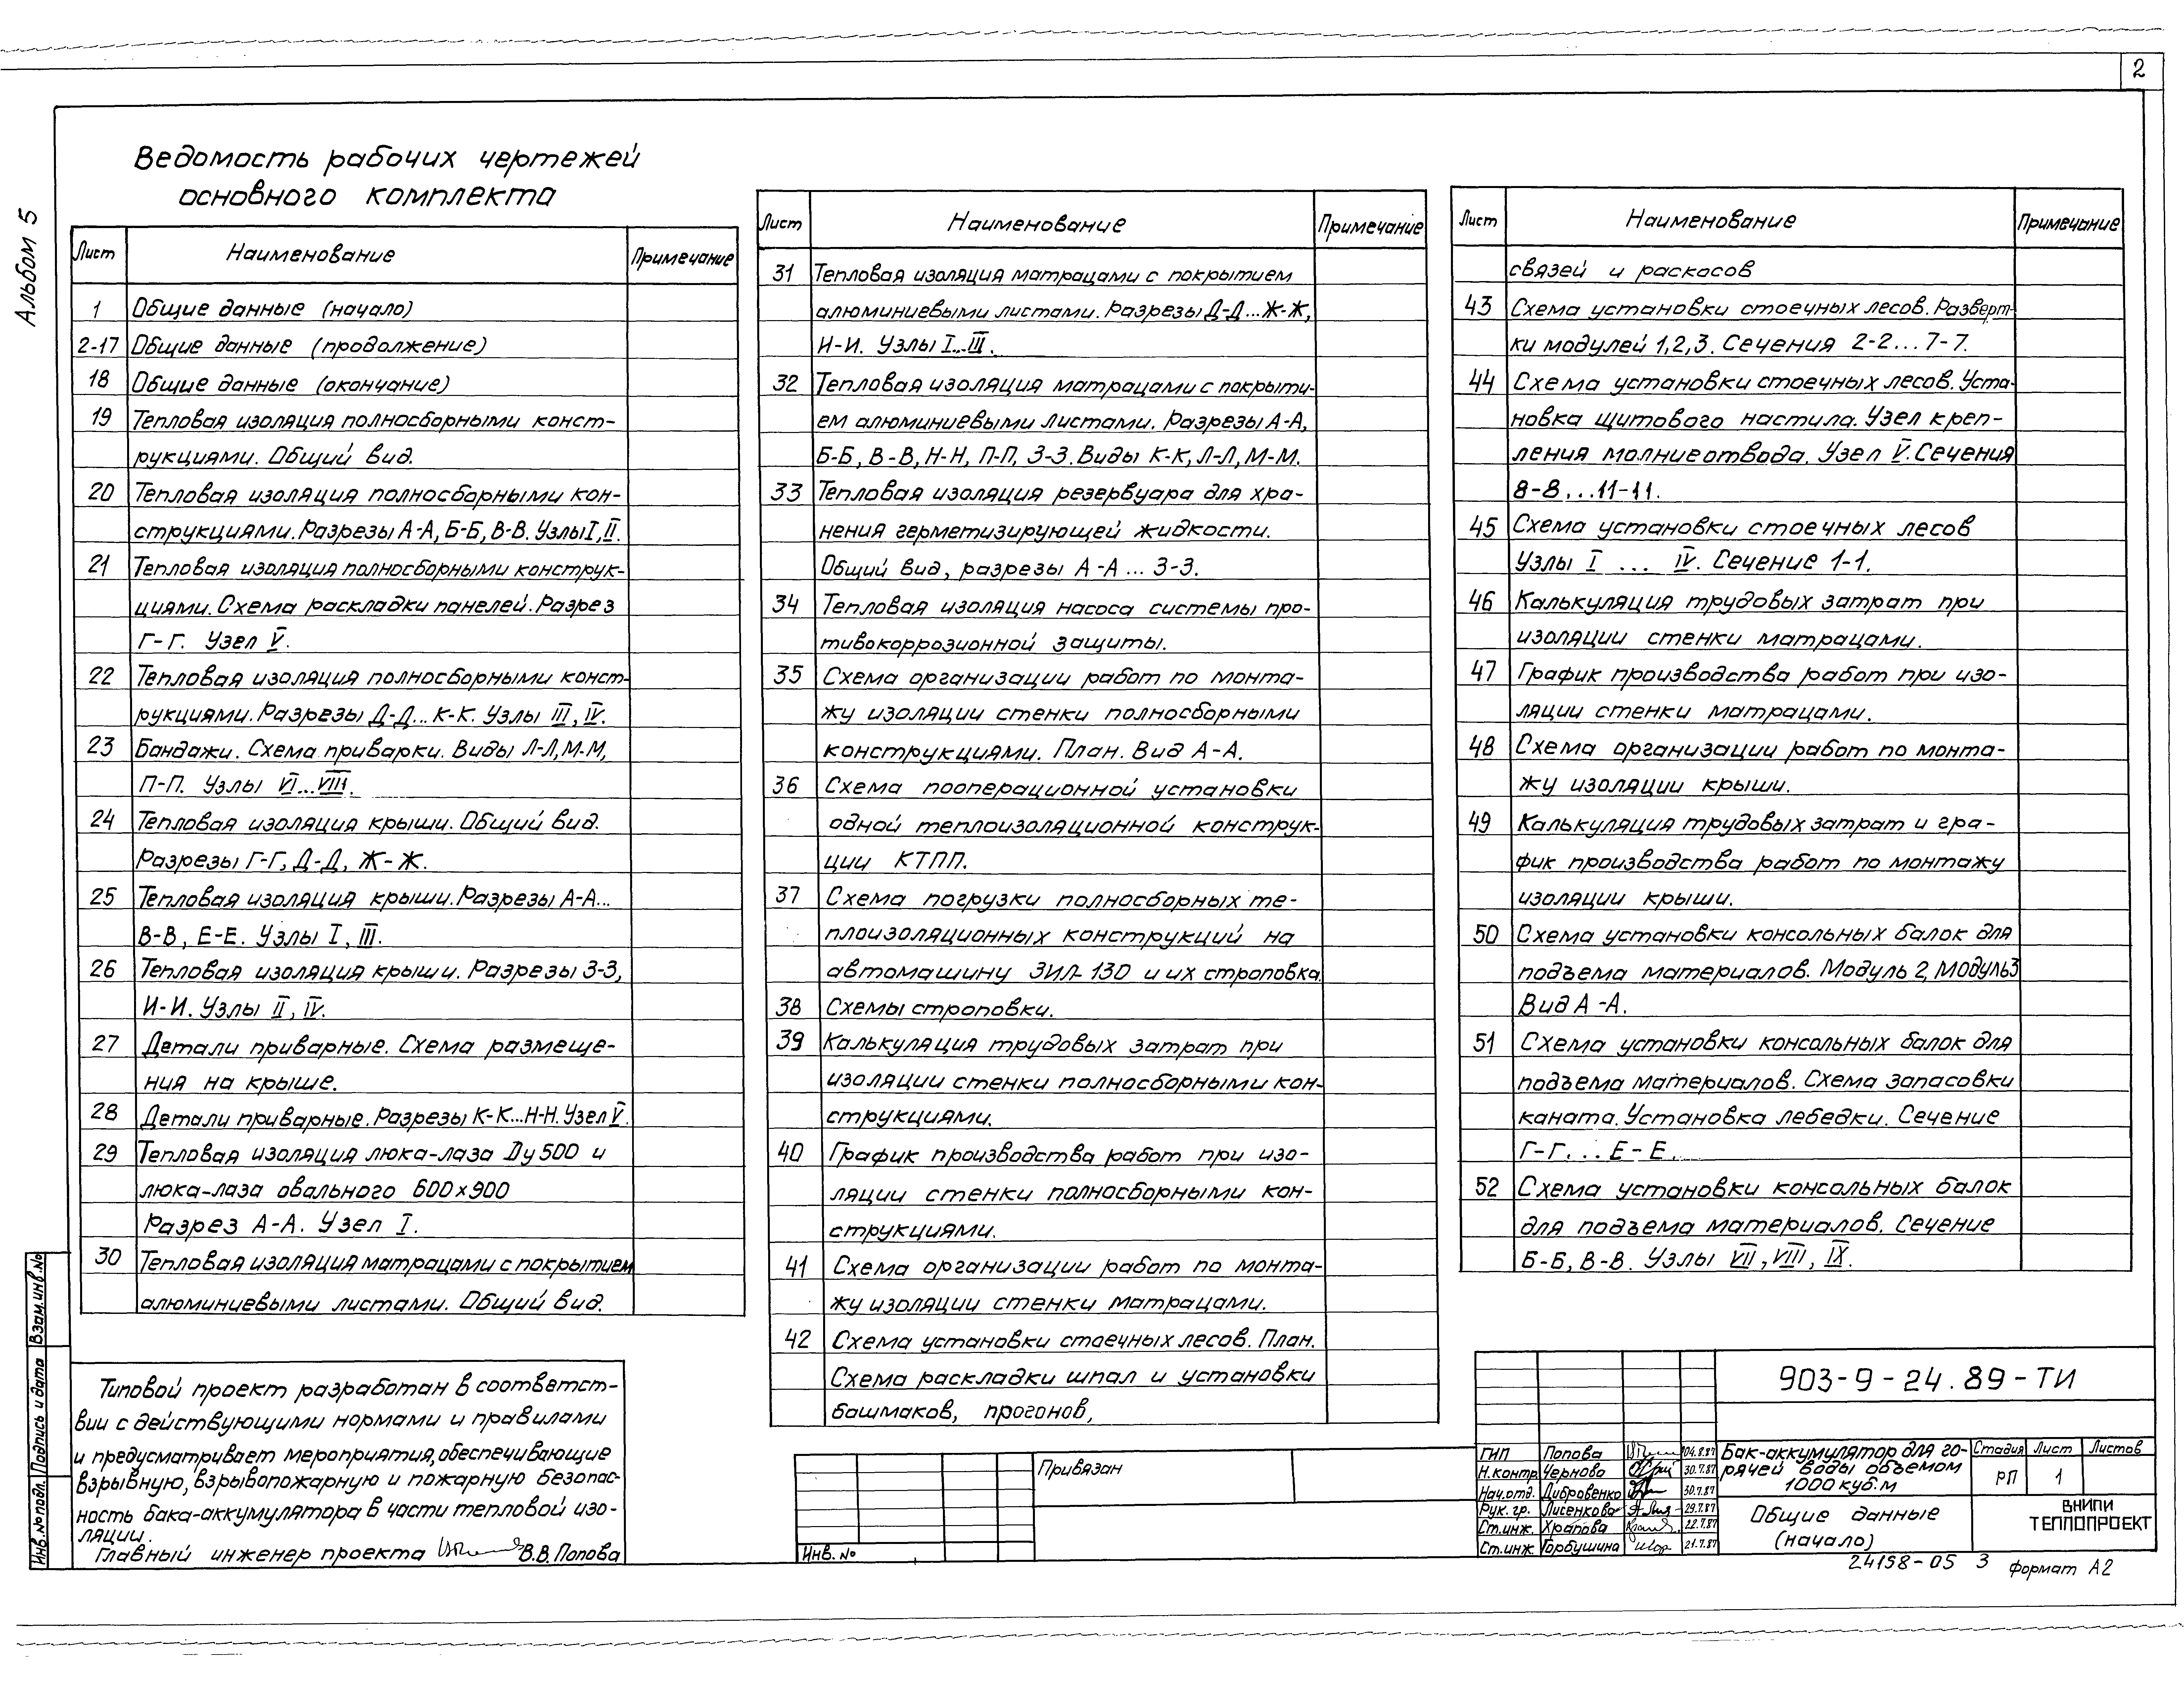 2
Альбом 5
Ведомость рабочих чертежей
основного комплекта
Лист Наименование Примечание
1 Общие данные (начало)
2-17 Общие данные (продолжение)
18 Общие данные (окончание)
19 Тепловая изоляция полносборными конст-
рукциями. Общий вид.
20 Тепловая изоляция полносборными кон-
струкциями. Разрезы А-А, Б-Б, В-В. Узлы I, II.
21 Тепловая изоляция полносборными конструк-
циями. Схема раскладки панелей. Разрез
Г-Г. Узел V.
22 Тепловая изоляция полносборными конст-
рукциями. Разрезы Д-Д... К-К. Узлы III, IV.
23 Бандажи. Схема приварки. Виды Л-Л, М-М,
П-П. Узлы VI...VIII.
24 Тепловая изоляция крыши. Общий вид.
Разрезы Г-Г, Д-Д, Ж-Ж.
25 Тепловая изоляция крыши. Разрезы А-А...
В-В, Е-Е. Узлы I, III.
26 Тепловая изоляция крыши. Разрезы З-З,
И-И. Узлы II, IV.
27 Детали приварные. Схема размеще-
ния на крыше.
28 Детали приварные. Разрезы К-К...Н-Н. Узел V.
29 Тепловая изоляция люка-лаза Ду 500 и
люка-лаза овального 600х900
Разрез А-А. Узел I.
30 Тепловая изоляция матрацами с покрытием
алюминиевыми листами. Общий вид.
Лист Наименование Примечание
31 Тепловая изоляция матрацами с покрытием
алюминиевыми листами. Разрезы Д-Д...Ж-Ж,
И-И. Узлы I...III.
32 Тепловая изоляция матрацами с покрыти-
ем алюминиевыми листами. Разрезы А-А,
Б-Б, В-В, Н-Н, П-П, З-З. Виды К-К, Л-Л, М-М.
33 Тепловая изоляция резервуара для хра-
нения герметизирующей жидкости.
Общий вид, разрезы А-А... З-З.
34 Тепловая изоляция насоса системы про-
тивокоррозионной защиты.
35 Схема организации работ по монта-
жу изоляции стенки полносборными
конструкциями. План. Вид А-А.
36 Схема пооперационной установки
одной теплоизоляционной конструк-
ции КТПП.
37 Схема погрузки полносборных те-
плоизоляционных конструкций на
автомашину ЗИЛ-130 и их строповка.
38 Схемы строповки.
39 Калькуляция трудовых затрат при
изоляции стенки полносборными кон-
струкциями.
40 График производства работ при изо-
ляции стенки полносборными кон-
струкциями.
41 Схема организации работ по монта-
жу изоляции стенки матрацами.
42 Схема установки стоечных лесов. План.
Схема раскладки шпал и установки
башмаков, прогонов,
Лист Наименование Примечание
связей и раскосов
43 Схема установки стоечных лесов. Разверт-
ки модулей 1,2,3. Сечения 2-2... 7-7.
44 Схема установки стоечных лесов. Уста-
новка щитового настила. Узел креп-
ления молниеотвода. Узел V. Сечения
8-8...11-11.
45 Схема установки стоечных лесов
Узлы I ... IV. Сечение 1-1.
46 Калькуляция трудовых затрат при
изоляции стенки матрацами.
47 График производства работ при изо-
ляции стенки матрацами.
48 Схема организации работ по монта-
жу изоляции крыши.
49 Калькуляция трудовых затрат и гра-
фик производства работ по монтажу
изоляции крыши.
50 Схема установки консольных балок для
подъема материалов. Модуль 2, модуль 3
Вид А-А.
51 Схема установки консольных балок для
подъема материалов. Схема запасовки
каната. Установка лебедки. Сечение
Г-Г... Е-Е.
52 Схема установки консольных балок
для подъема материалов. Сечение
Б-Б, В-В. Узлы VII, VIII, IX.
Типовой проект разработан в соответст-
вии с действующими нормами и правилами
и предусматривает мероприятия, обеспечивающие
взрывную, взрывопожарную и пожарную безопас-
ность бака-аккумулятора в части тепловой изо-
ляции.
Главный инженер проекта В.В. Попова
Инв. № подл. Подпись и дата Взам. инв. №
Привязан
Инв. №
903-9-24.89-ТИ
ГИП Попова 04.8.87
Н.контр. Чернова 30.7.87
Нач.отд. Дибровенко 30.7.87
Рук. гр. Лисенкова 29.7.87
Ст.инж. Храпова 22.7.87
Ст.инж. Горбушина 21.7.87
Бак-аккумулятор для го-
рячей воды объемом
1000 куб.м
Стадия Лист Листов
РП 1
Общие данные
(начало)
ВНИПИ
ТЕПЛОПРОЕКТ
24158-05 3 Формат А2